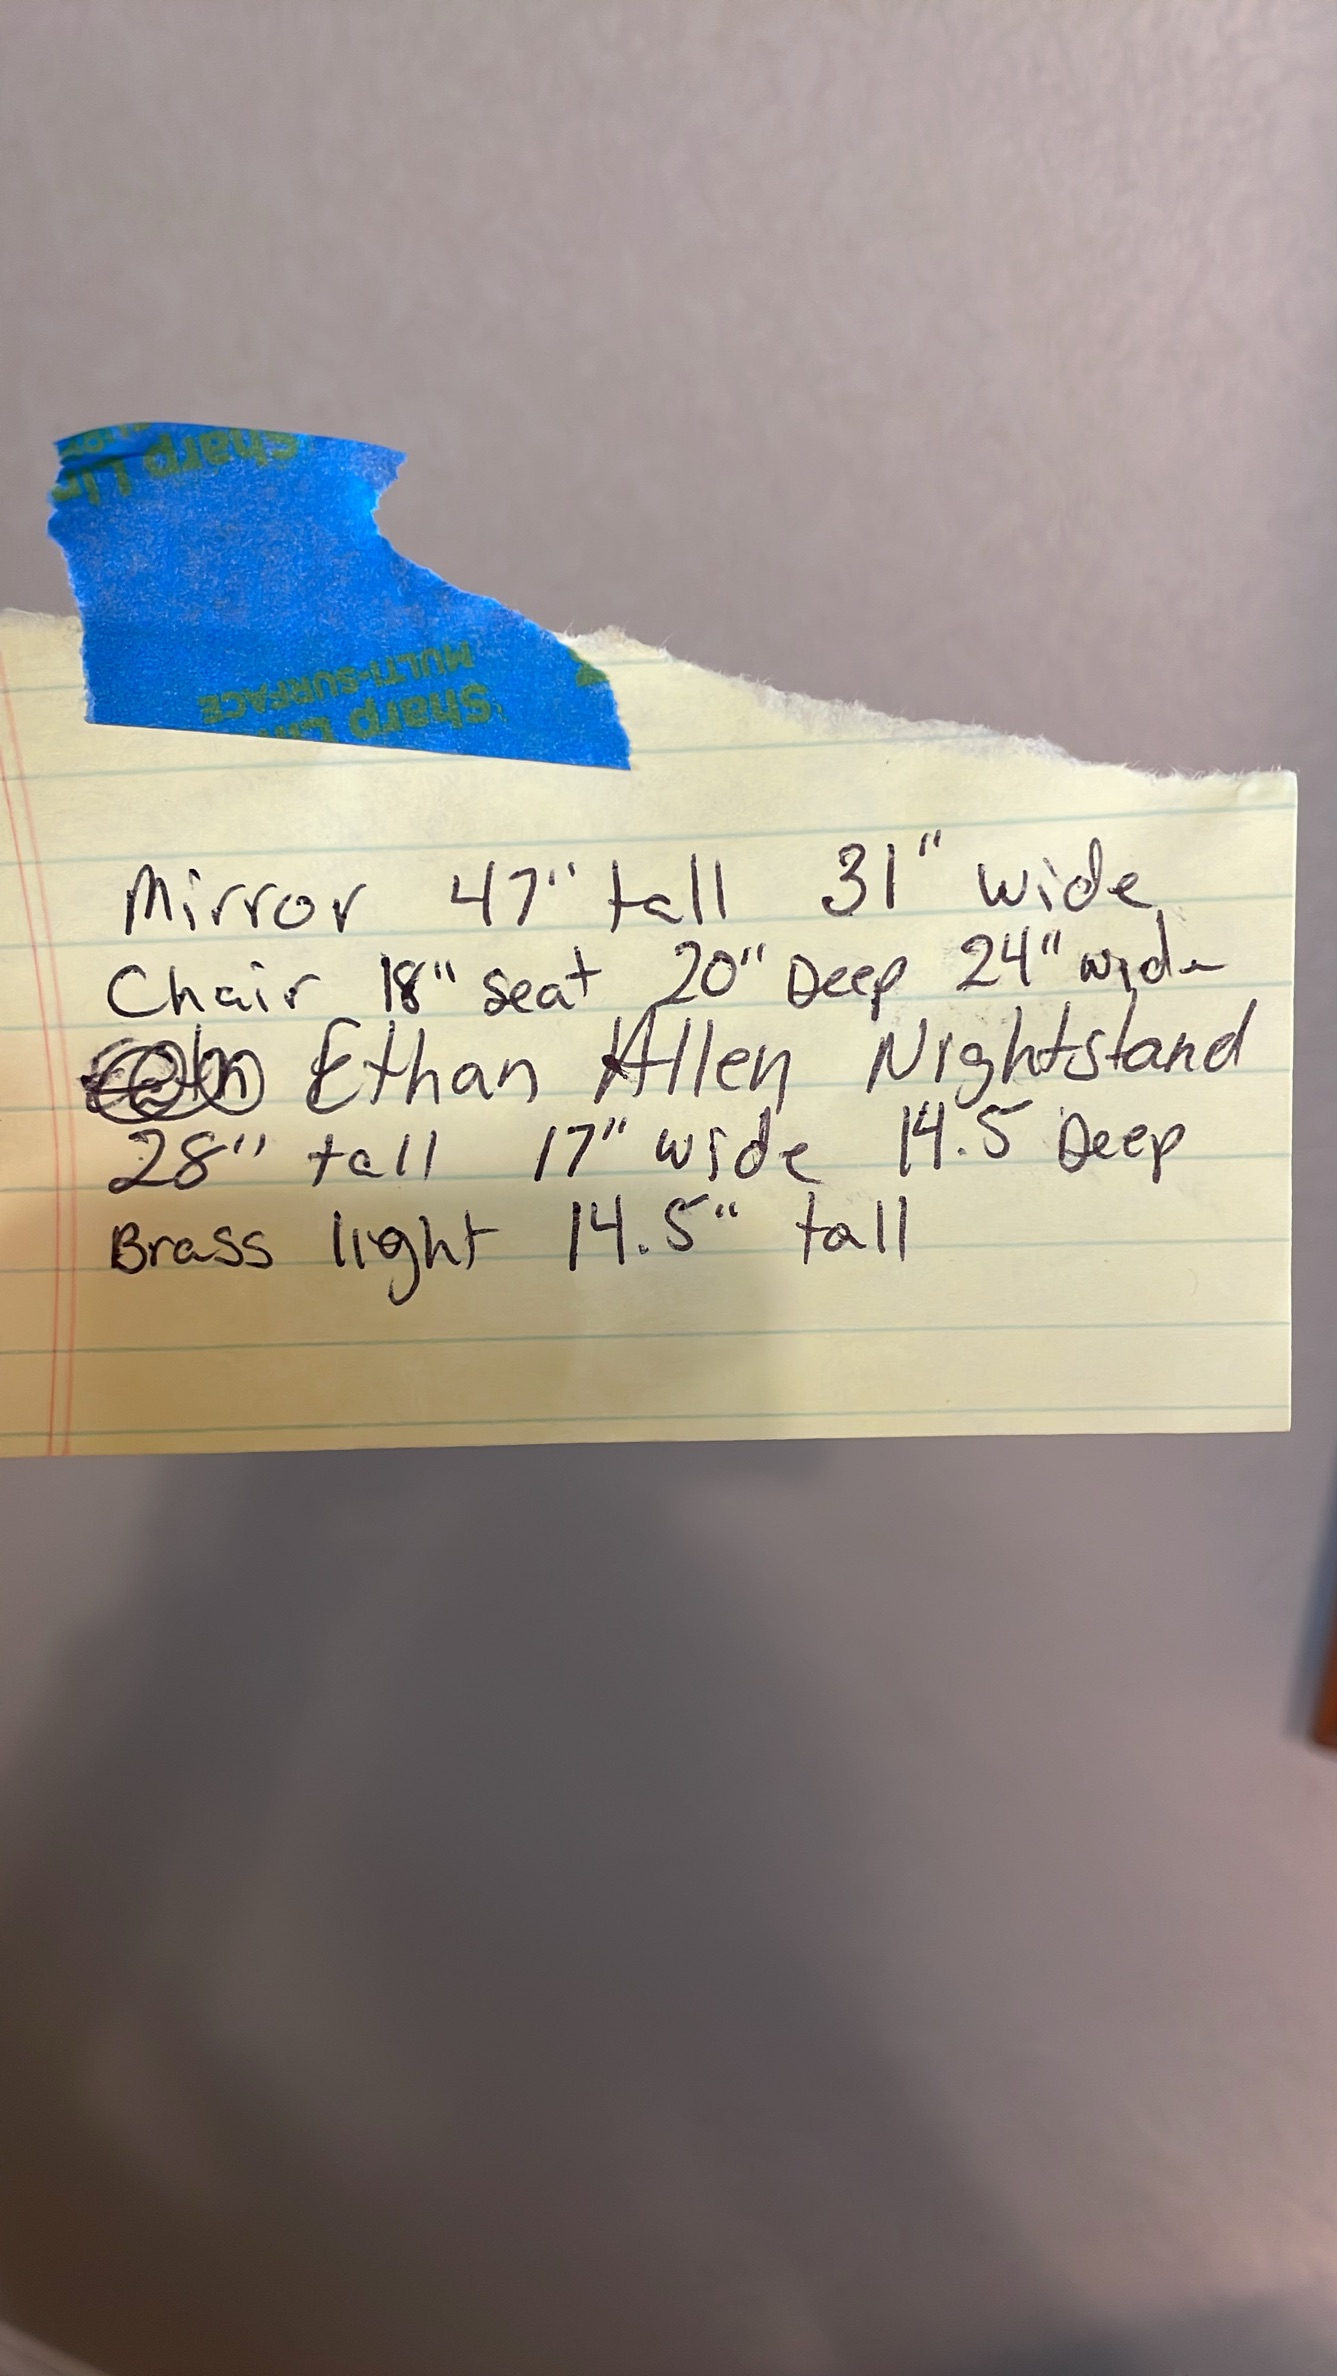 Sharp Lin
Sharp Lin
MULTI-SURFACE
Mirror 47" tall 31" wide
Chair 18" seat 20" Deep 24" wide
Ethan Allen Nightstand
28" tall 17" wide 14.5 Deep
Brass light 14.5" tall